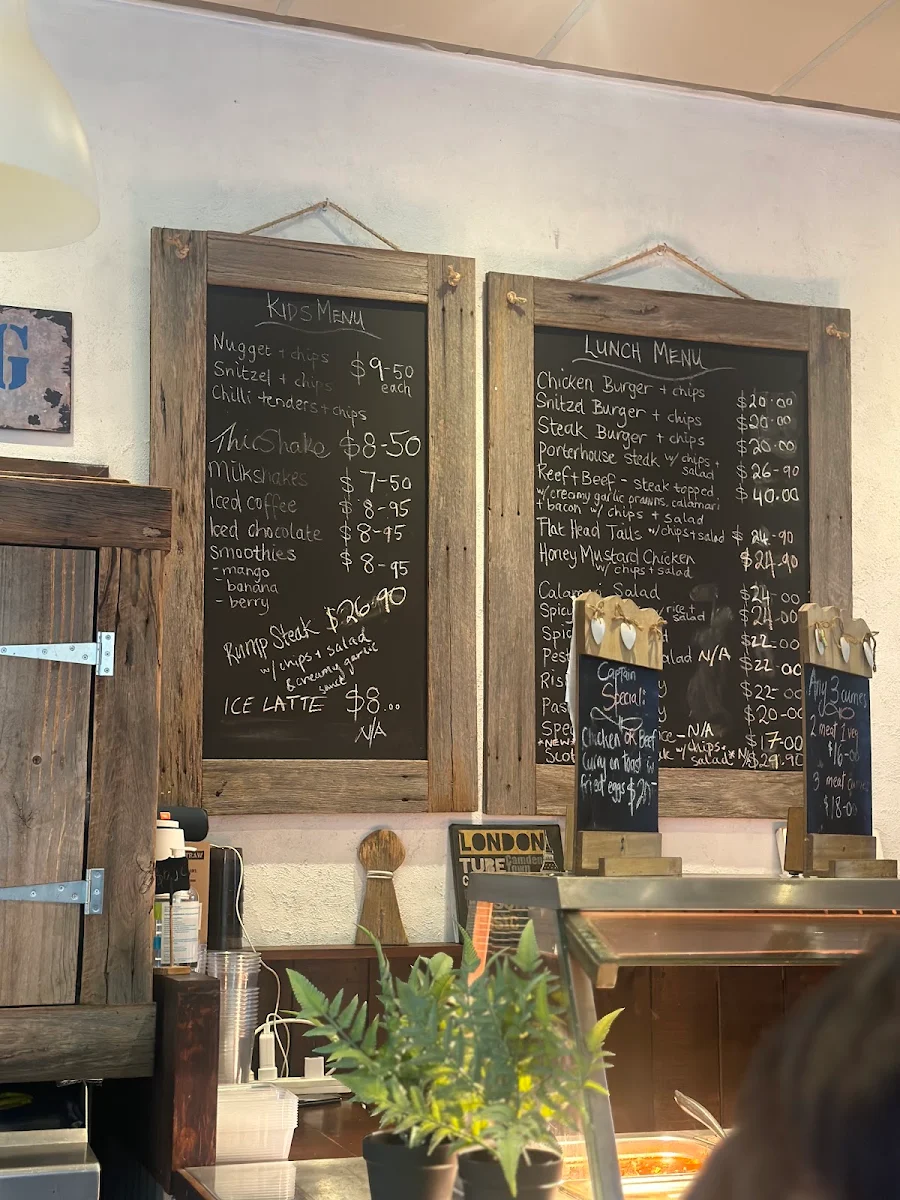 G
KIDS MENU
Nugget + chips
Snitzel + chips
$9-50
each
Chilli tenders + chips
ThicShake $8-50
Milkshakes $7-50
Iced coffee $8-95
Iced chocolate $8-95
Smoothies $8-95
- mango
- banana
- berry
Rump Steak $26.90
w/chips + salad
& creamy garlic
sauce
ICE LATTE $8.00
N/A
LUNCH MENU
Chicken Burger + chips $20.00
Snitzel Burger + chips $20.00
Steak Burger + chips $20.00
porterhouse steak w/ chips + $26-90
salad
Reef + Beef - steak topped $40.00
w/creamy garlic prawns, calamari
+ bacon w/ chips + salad
Flat Head Tails w/chips + salad $24-90
Honey Mustard Chicken $24.90
w/ chips + salad
Salad $24-00
Spicy rice + salad $24-00
$22-00
Pest alad N/A $22-00
Ris $22-00
Pas $20-00
Spe ce - N/A $17-00
*NEW* w/chips +
Scot salad* N/A $29.90
Captain
Special:
Chicken OR Beef
curry on toast w
fried eggs $20-
Any 3 curries
2 meat 1 veg
$16-00
3 meat curries
$18-00
LONDON
TUBE Camden
Town